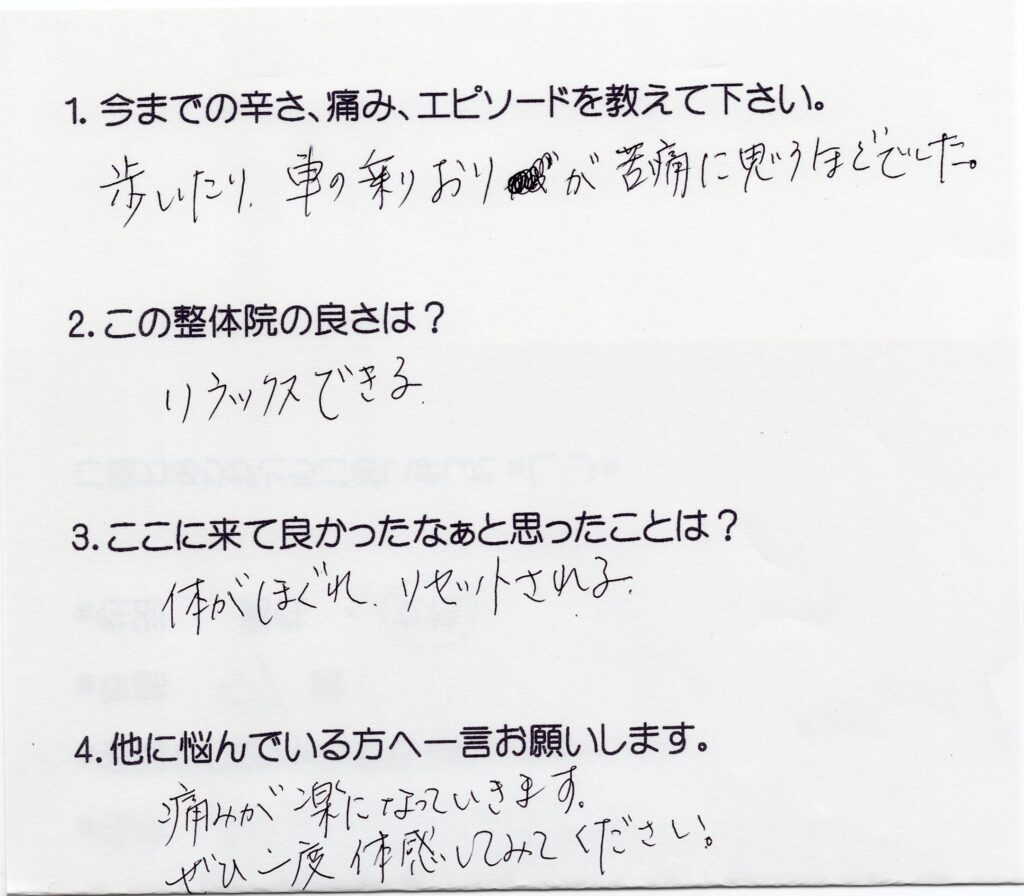 1. 今までの辛さ、痛み、エピソードを教えて下さい。
歩いたり、車の乗りおりが苦痛に思うほどでした。
2. この整体院の良さは？
リラックスできる。
3. ここに来て良かったなぁと思ったことは？
体がほぐれ、リセットされる。
4. 他に悩んでいる方へ一言お願いします。
痛みが楽になっていきます。
ぜひ一度体感してみてください。